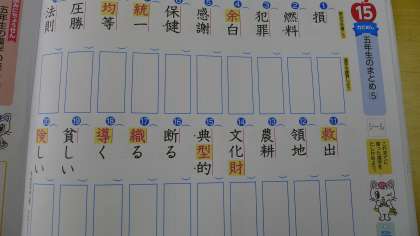 15
五年生のまとめ⑤
①損
②燃料
③犯罪
④余白
⑤感謝
⑥保健
⑦統一
⑧均等
圧勝
法則
シール
⑪救出
⑫領地
⑬農耕
⑭文化財
⑮典型的
⑯断る
⑰織る
⑱導く
⑲貧しい
⑳険しい